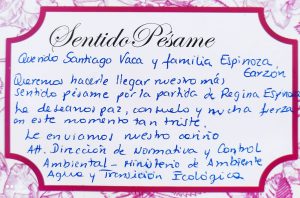 Sentido Pésame
Querido Santiago Vaca y familia Espinoza
Garzón
Queremos hacerle llegar nuestro más
sentido pésame por la partida de Regina Espinosa
Le deseamos paz, consuelo y mucha fuerza
en este momento tan triste.
Le enviamos nuestro cariño
Att. Dirección de Normativa y Control
Ambiental - Ministerio de Ambiente
Agua y Transición Ecológica